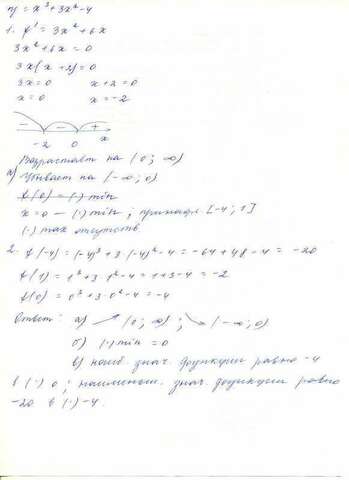 y = x³+3x²-4
1. f' = 3x² + 6x
3x²+6x=0
3x(x+2)=0
3x=0 x+2=0
x=0 x=-2
- - +
-2 0 x
Возрастает на (0; ∞)
а) Убывает на (-∞; 0)
f(0) = (·) min
x=0 — (·) min; принадл [-4; 1]
(·) max отсутств.
2. f(-4) = (-4)³+3·(-4)²-4 = -64+48-4 = -20
f(1) = 1³+3·1²-4=1+3-4=-2
f(0) = 0³+3·0²-4=-4
Ответ: а) ↗ (0; ∞); ↘ (-∞; 0)
б) (·) min = 0
в) наиб. знач. функции равно -4
в (·) 0; наименьш. знач. функции равно
-20 в (·) -4.